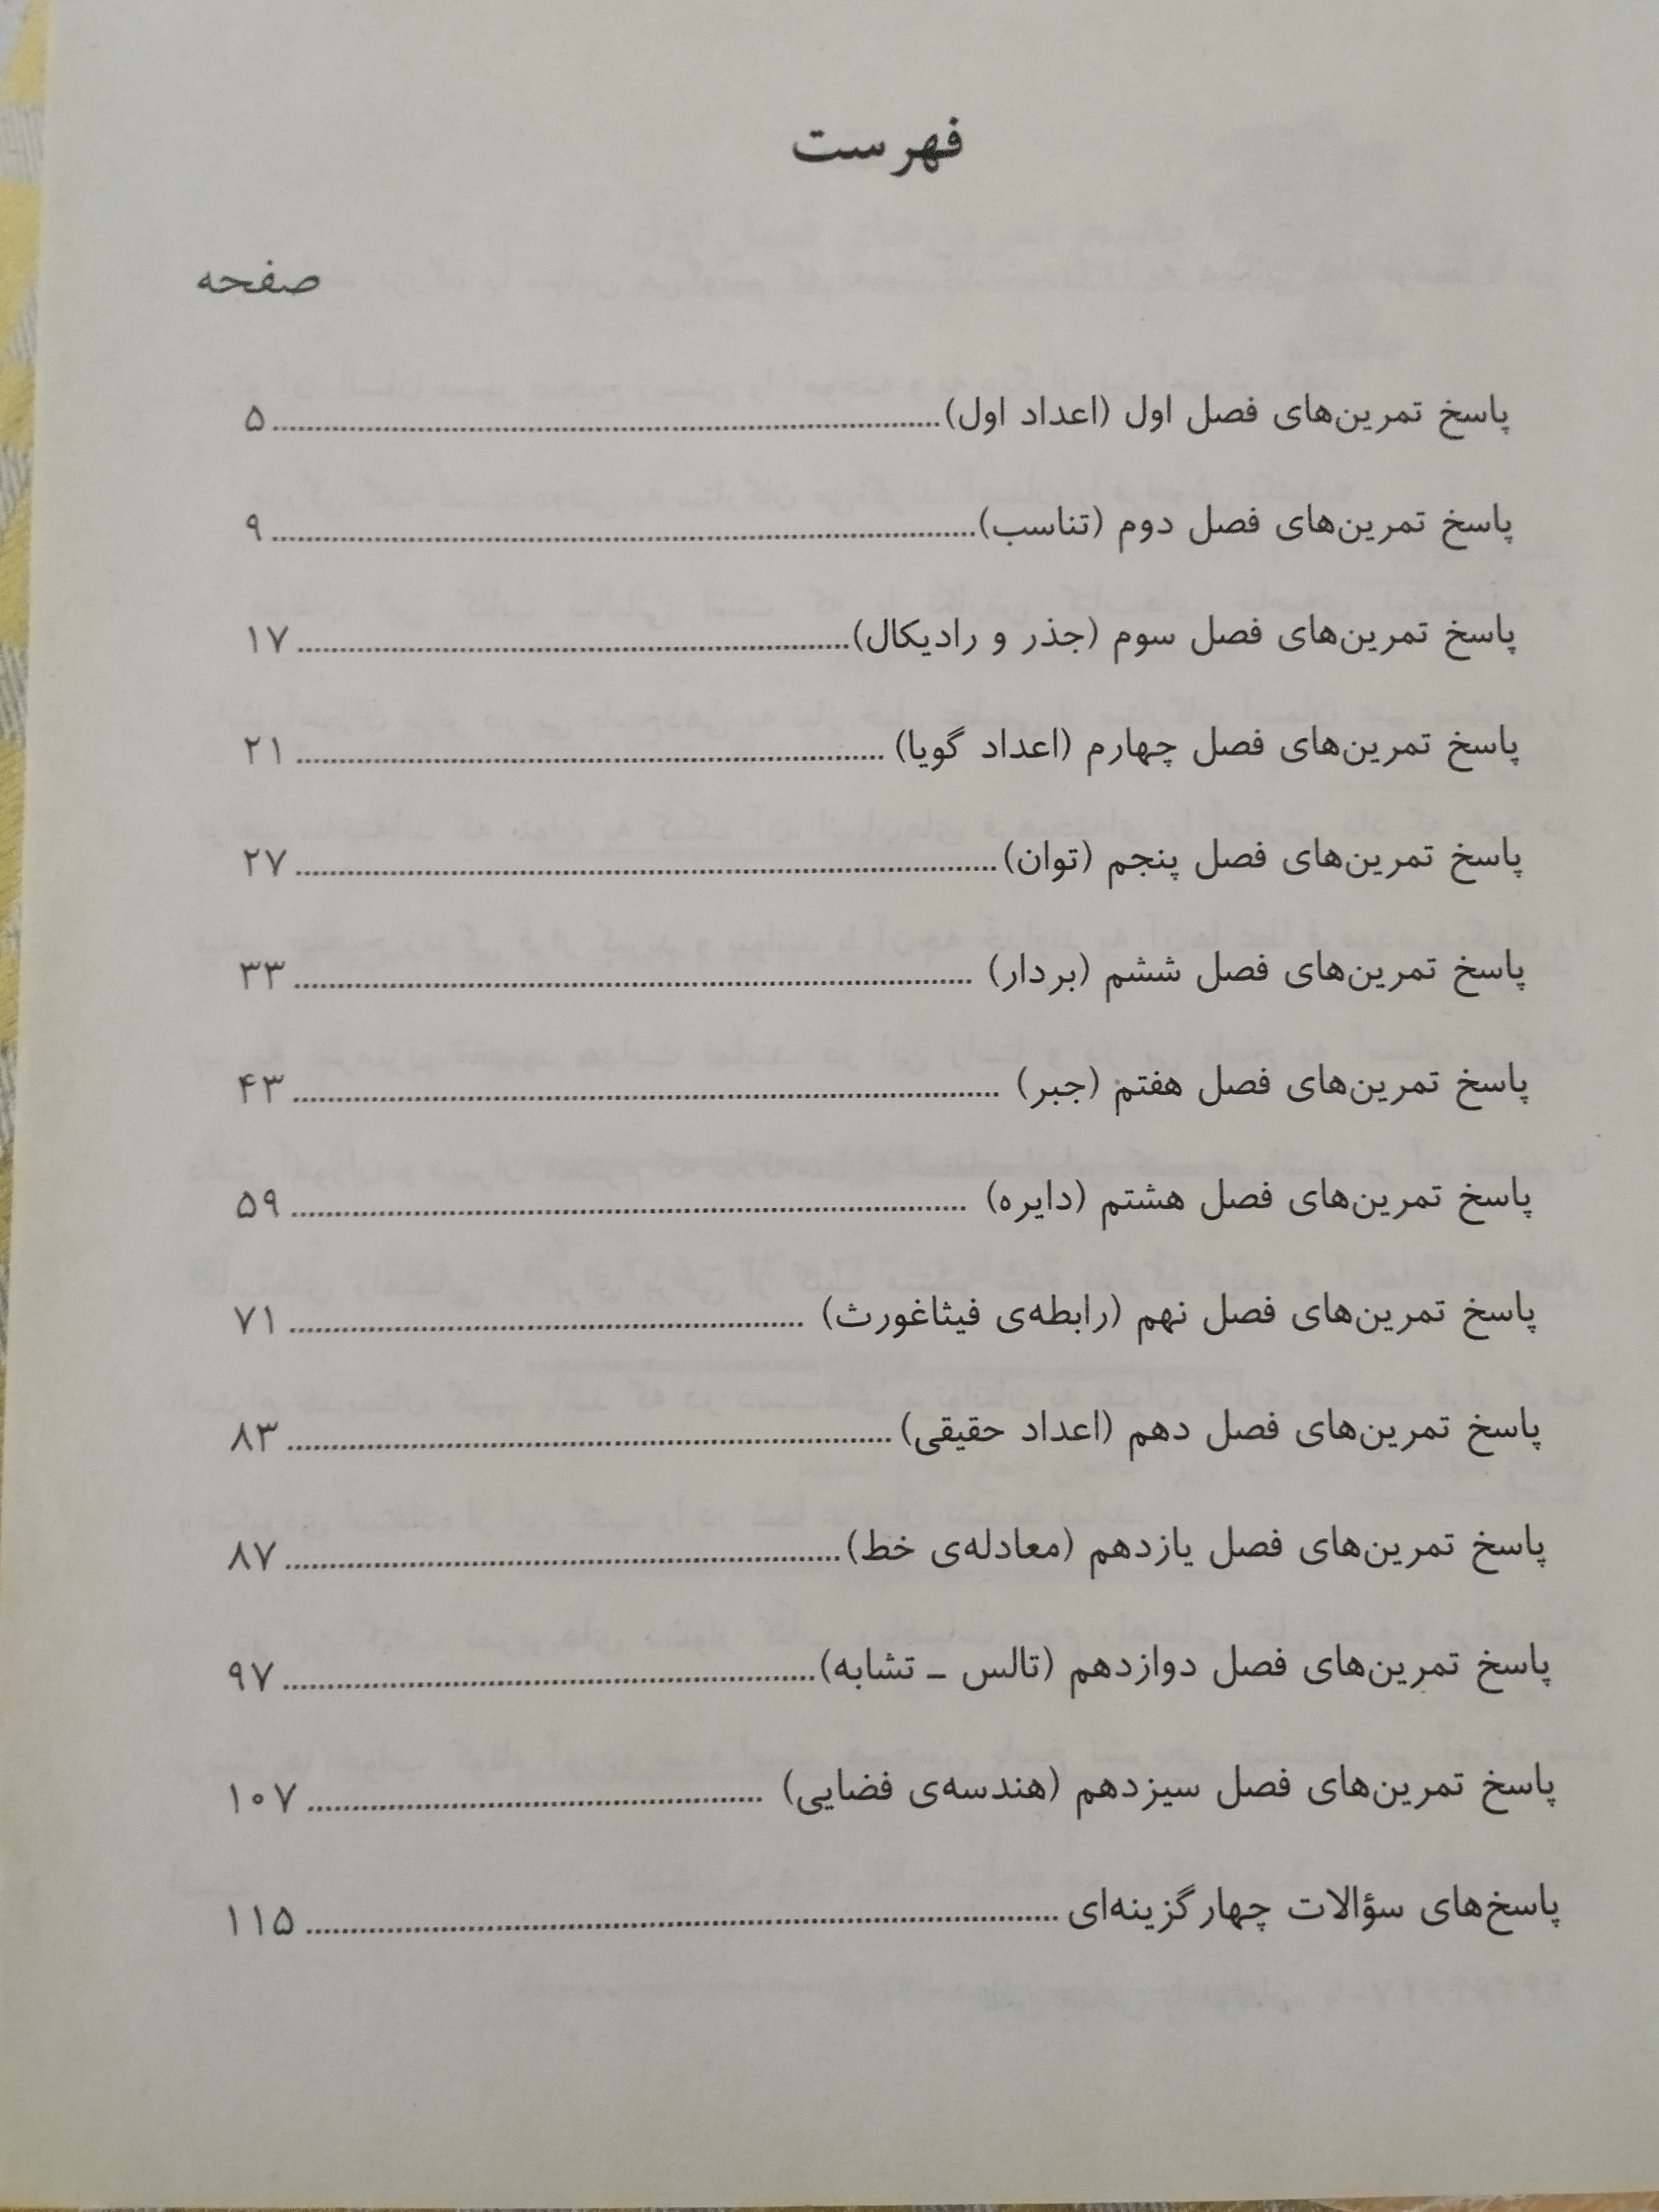 فهرست
صفحه
پاسخ تمرین‌های فصل اول (اعداد اول)........................................ ۵
پاسخ تمرین‌های فصل دوم (تناسب)........................................ ۹
پاسخ تمرین‌های فصل سوم (جذر و رادیکال)........................................ ۱۷
پاسخ تمرین‌های فصل چهارم (اعداد گویا) ........................................ ۲۱
پاسخ تمرین‌های فصل پنجم (توان)........................................ ۲۷
پاسخ تمرین‌های فصل ششم (بردار) ........................................ ۳۳
پاسخ تمرین‌های فصل هفتم (جبر) ........................................ ۴۳
پاسخ تمرین‌های فصل هشتم (دایره) ........................................ ۵۹
پاسخ تمرین‌های فصل نهم (رابطه‌ی فیثاغورث) ........................................ ۷۱
پاسخ تمرین‌های فصل دهم (اعداد حقیقی) ........................................ ۸۳
پاسخ تمرین‌های فصل یازدهم (معادله‌ی خط)........................................ ۸۷
پاسخ تمرین‌های فصل دوازدهم (تالس ـ تشابه)........................................ ۹۷
پاسخ تمرین‌های فصل سیزدهم (هندسه‌ی فضایی) ........................................ ۱۰۷
پاسخ‌های سؤالات چهارگزینه‌ای ........................................ ۱۱۵